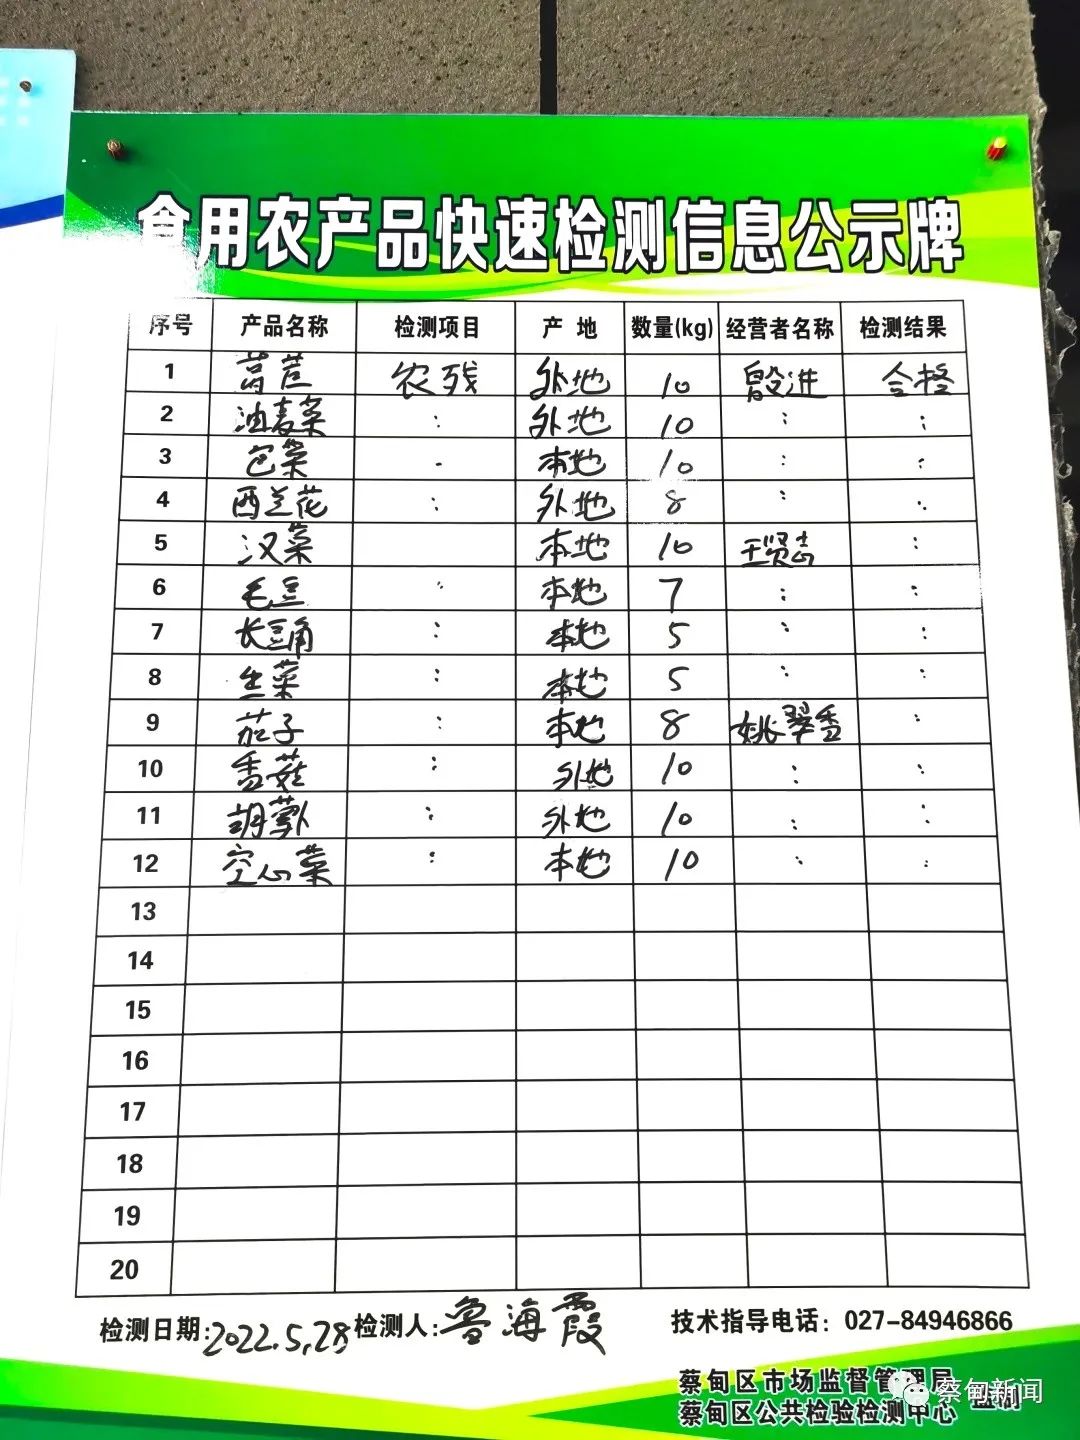 食用农产品快速检测信息公示牌
序号 产品名称 检测项目 产地 数量(kg) 经营者名称 检测结果
1 莴苣 农残 外地 10 曾进 合格
2 油麦菜 : 外地 10 : :
3 包菜 : 本地 10 : :
4 西兰花 : 外地 8 : :
5 汉菜 本地 10 王贤志 :
6 毛豆 : 本地 7 : :
7 长豆角 : 本地 5 : :
8 生菜 : 本地 5 : :
9 茄子 : 本地 8 姚翠香 :
10 香菇 : 外地 10 : :
11 胡萝卜 : 外地 10 : :
12 空心菜 : 本地 10 : :
13
14
15
16
17
18
19
20
检测日期:2022.5.28 检测人:鲁海霞 技术指导电话：027-84946866
蔡甸区市场监督管理局
蔡甸区公共检验检测中心 监制
蔡甸新闻